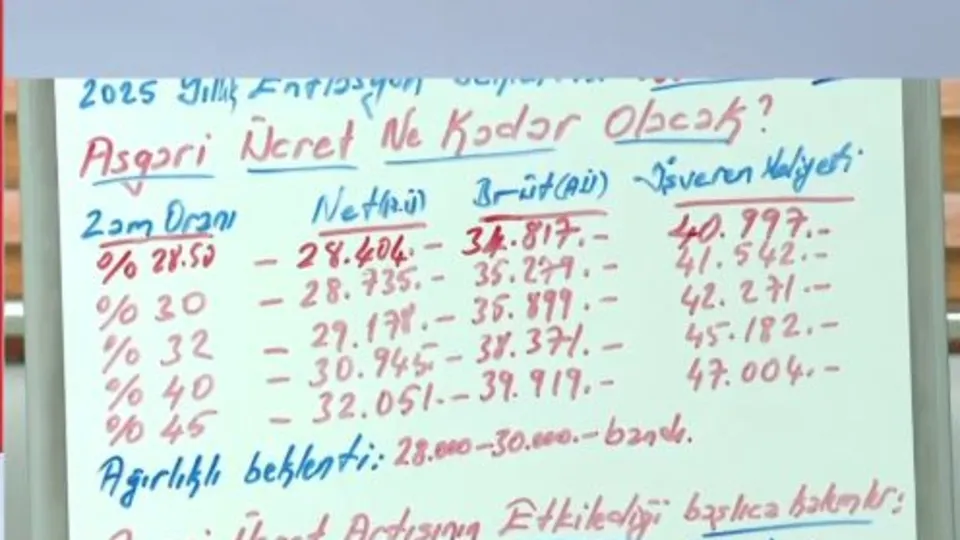 2025 Yıllık Enflasyon
Asgari Ücret Ne Kadar Olacak?
Zam Oranı Net(A.Ü) Brüt(A.Ü) İşveren Maliyeti
%28.50 – 28.404.– 34.817.– 40.997.–
%30 – 28.735.– 35.279.– 41.542.–
%32 – 29.178.– 35.899.– 42.271.–
%40 – 30.945.– 38.371.– 45.182.–
%45 – 32.051.– 39.919.– 47.004.–
Ağırlıklı beklenti: 28.000–30.000.– bandı.
Ücret Artışının Etkilediği başlıca kalemler: